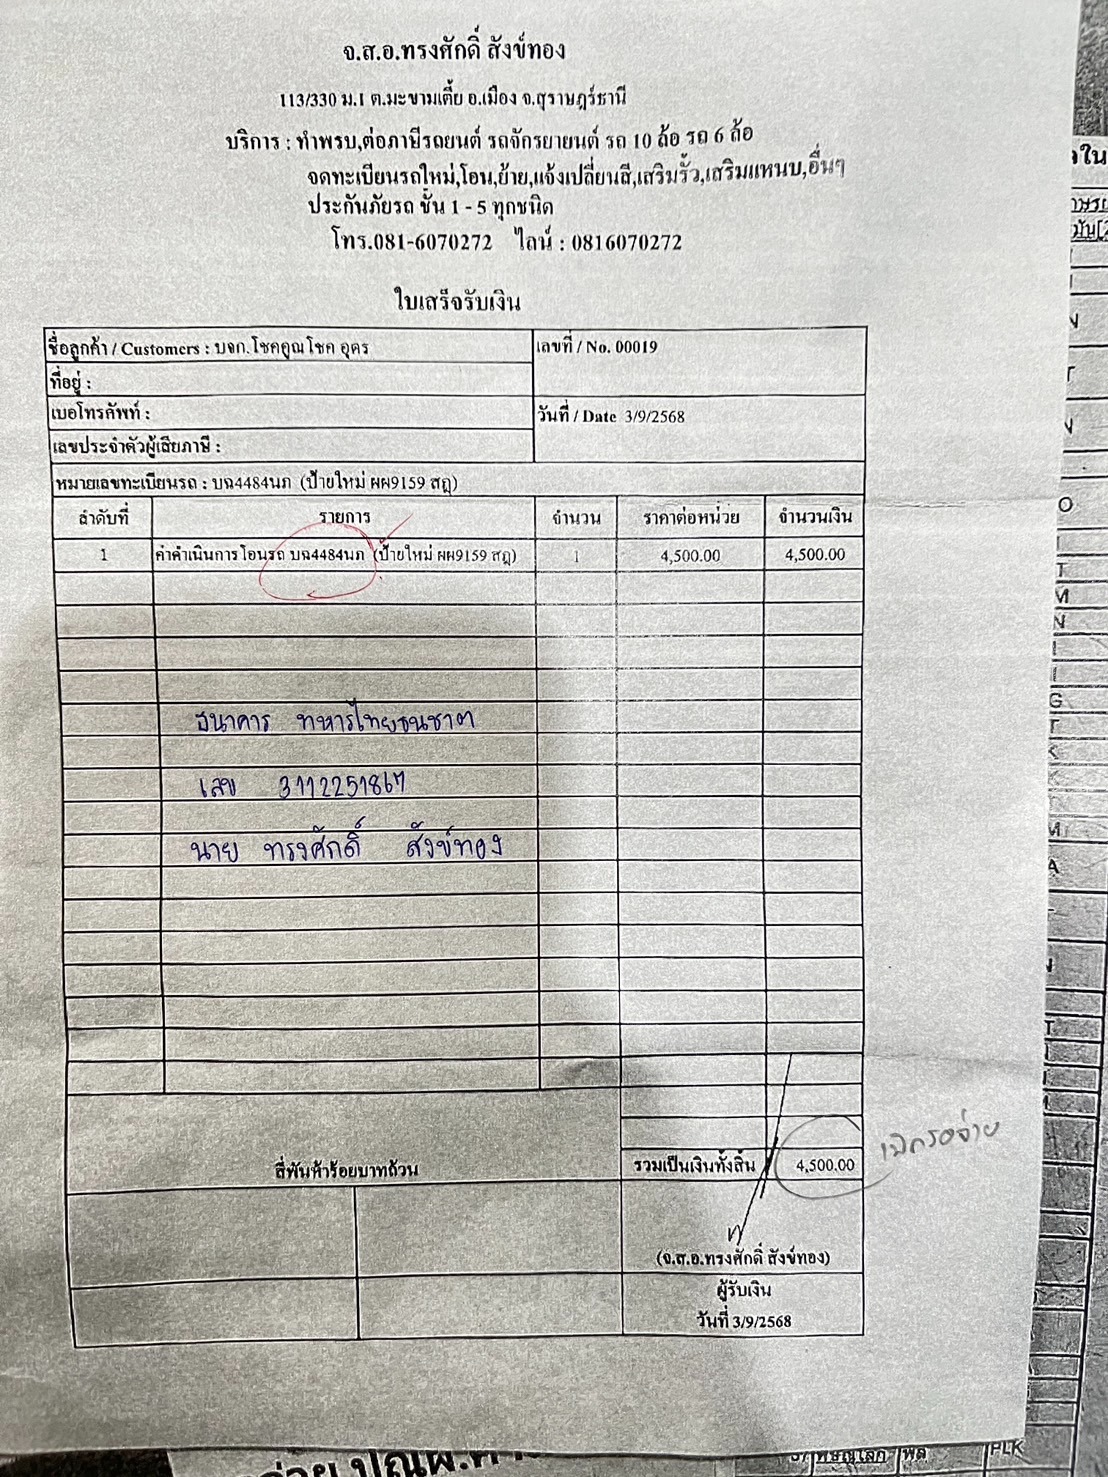 จ.ส.อ.ทรงศักดิ์ สังข์ทอง
113/330 ม.1 ต.มะขามเตี้ย อ.เมือง จ.สุราษฎร์ธานี
บริการ : ทำพรบ,ต่อภาษีรถยนต์ รถจักรยายนต์ รถ 10 ล้อ รถ 6 ล้อ
จดทะเบียนรถใหม่,โอน,ย้าย,แจ้งเปลี่ยนสี,เสริมรั้ว,เสริมแหนบ,อื่นๆ
ประกันภัยรถ ชั้น 1 - 5 ทุกชนิด
โทร.081-6070272 ไลน์ : 0816070272
ใบเสร็จรับเงิน
ชื่อลูกค้า / Customers : บจก.โชคคูณโชค อุดร
เลขที่ / No. 00019
ที่อยู่ :
เบอโทรศัพท์ :
วันที่ / Date 3/9/2568
เลขประจำตัวผู้เสียภาษี :
หมายเลขทะเบียนรถ : บฉ4484นภ (ป้ายใหม่ ผผ9159 สฎ)
ลำดับที่ รายการ จำนวน ราคาต่อหน่วย จำนวนเงิน
1 ค่าดำเนินการโอนรถ บฉ4484นภ (ป้ายใหม่ ผผ9159 สฎ) 1 4,500.00 4,500.00
ธนาคาร ทหารไทยธนชาต
เลข 3112251867
นาย ทรงศักดิ์ สังข์ทอง
สี่พันห้าร้อยบาทถ้วน
รวมเป็นเงินทั้งสิ้น 4,500.00
เบิกรอจ่าย
(จ.ส.อ.ทรงศักดิ์ สังข์ทอง)
ผู้รับเงิน
วันที่ 3/9/2568
PLK